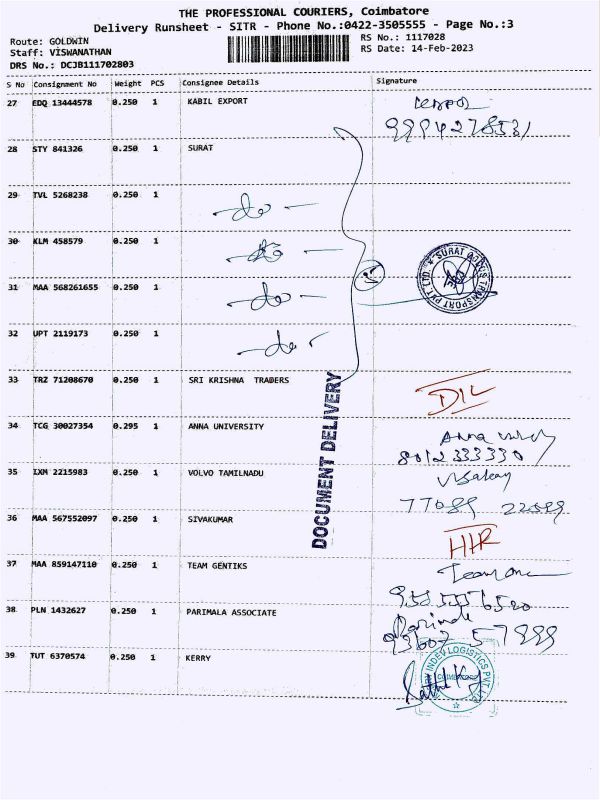 THE PROFESSIONAL COURIERS, Coimbatore
Delivery Runsheet - SITR - Phone No.:0422-3505555 - Page No.:3
Route: GOLDWIN RS No.: 1117028
Staff: VISWANATHAN RS Date: 14-Feb-2023
DRS No.: DCJB111702803
S No Consignment No Weight PCS Consignee Details Signature
27 EDQ 13444578 0.250 1 KABIL EXPORT
9994278531
28 STY 841326 0.250 1 SURAT
29 TVL 5268238 0.250 1 -do-
30 KLM 458579 0.250 1 -do-
31 MAA 568261655 0.250 1 -do-
32 UPT 2119173 0.250 1 -do-
33 TRZ 71208670 0.250 1 SRI KRISHNA TRADERS
DIL
34 TCG 30027354 0.295 1 ANNA UNIVERSITY
8012333330
35 IXM 2215983 0.250 1 VOLVO TAMILNADU
77089 22099
36 MAA 567552097 0.250 1 SIVAKUMAR
HIR
37 MAA 859147110 0.250 1 TEAM GENTIKS
38 PLN 1432627 0.250 1 PARIMALA ASSOCIATE
39 TUT 6370574 0.250 1 KERRY
DOCUMENT DELIVERY